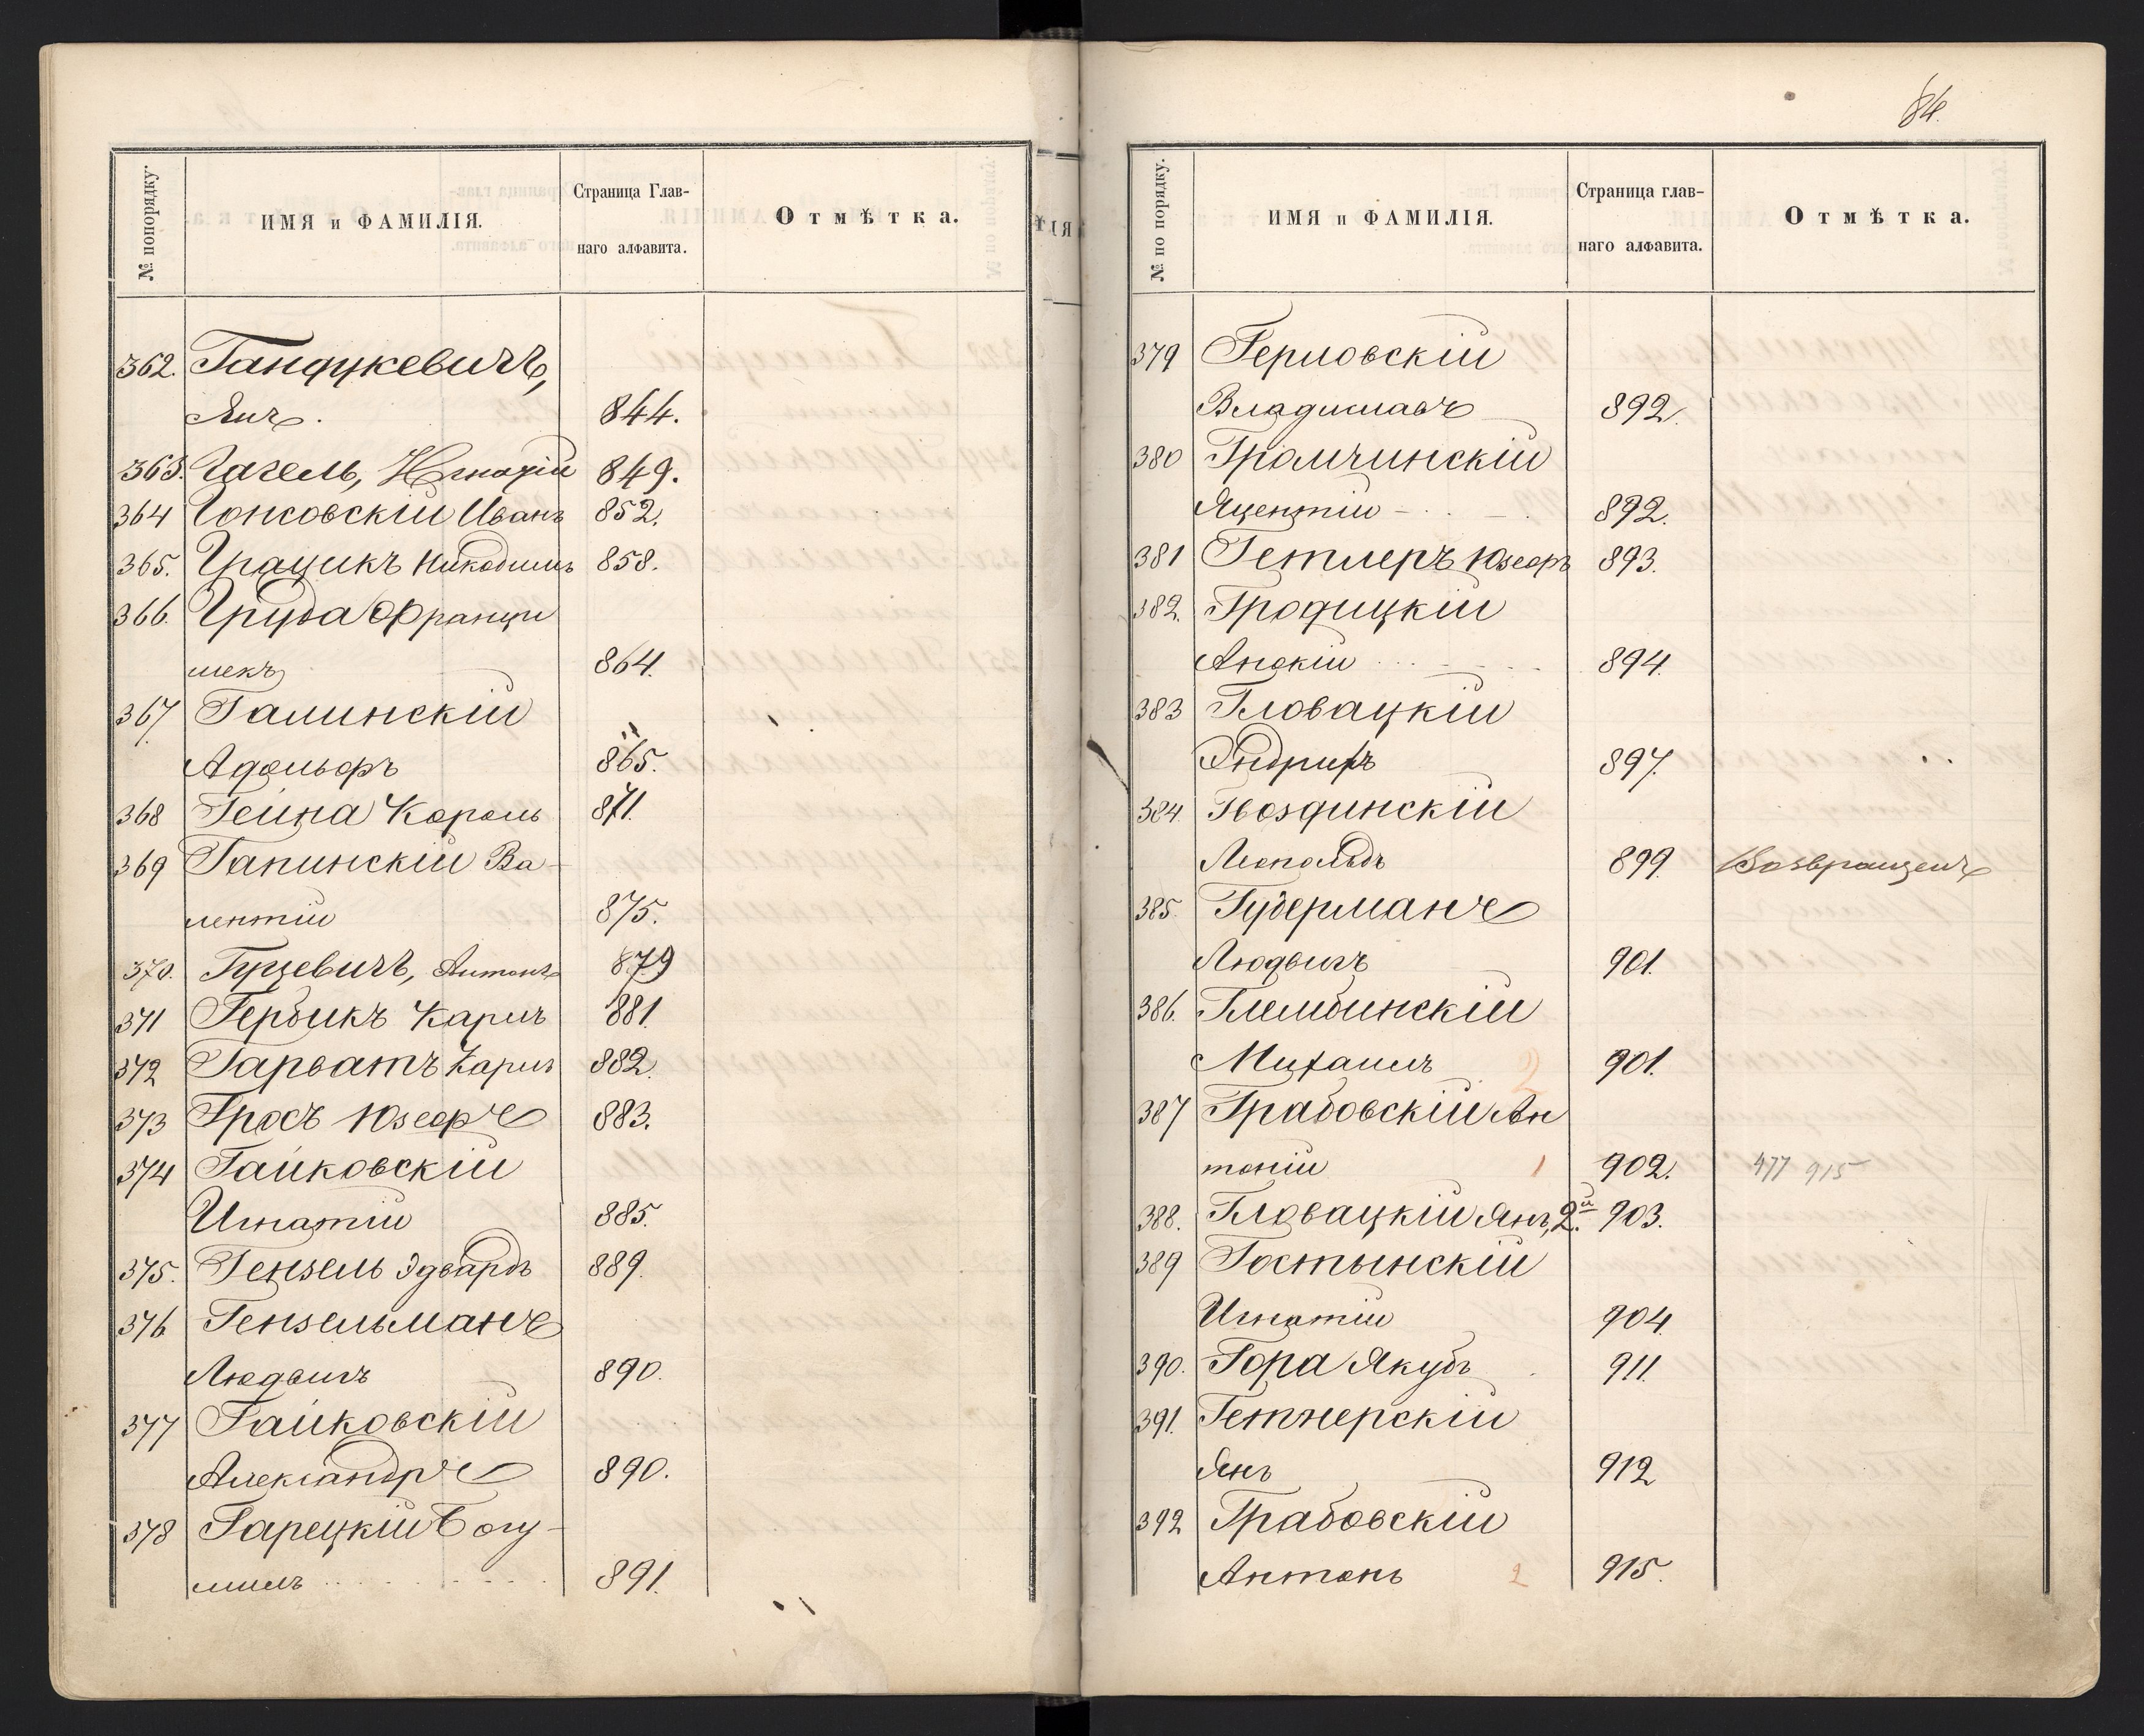 № попорядку.
ИМЯ и ФАМИЛІЯ.
Страница Глав-
наго алфавита.
Отмѣтка.
362. Гандукевичъ,
Янъ. 844.
363. Гагель, Игнатій 849.
364 Гонсовскій Иванъ 852.
365. Грацикъ Никодимъ 858.
366. Груба Франци
шекъ 864.
367. Галинскій
Адольфъ 865.
368 Гейна Кароль 871.
369 Гапинскій Ва-
лентій 875.
370. Гуцевичъ, Антонъ 879
371 Гербикъ Карлъ 881.
372 Гарватъ Карлъ 882.
373 Гросъ Юзефъ 883.
374 Гайковскій
Игнатій 885.
375. Гензель Эдвардъ 889.
376 Гензельманъ
Людвигъ 890.
377 Гайковскій
Александръ 890.
378 Гарецкій Богу-
милъ 891.
84.
№ по порядку.
ИМЯ и ФАМИЛІЯ.
Страница глав-
наго алфавита.
Отмѣтка.
379 Герловскій
Владиславъ 892.
380 Громчинскій
Яцентій 892.
381 Гетлеръ Юзефъ 893.
382. Гродицкій
894.
383 Гловацкій
Эндрихъ 897.
384. Гвоздинскій
Леопольдъ 899. Возвращенъ
385. Губерманъ
Людвигъ 901.
386. Глембинскій
Михаилъ 2 901.
387 Грабовскій Ан
тоній 1 902. 477 915
388. Гловацкій Янъ, 2й. 903.
389 Гостынскій
Игнатій 904.
390. Гора Якубъ 911.
391. Гетнерскій
Янъ 912
392 Грабовскій
Антонъ 2 915.